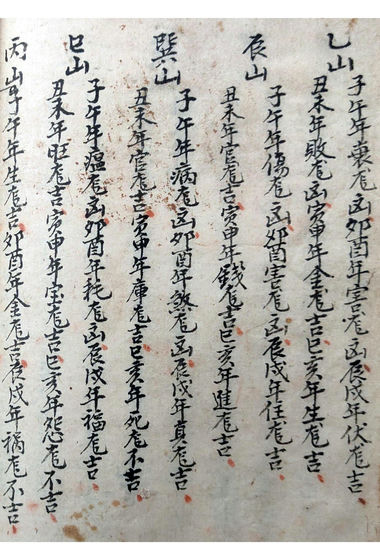 乙山
子午年衰危凶卯酉年害危凶辰戌年伏危吉
丑未年敗危凶寅申年金危吉巳亥年生危吉
辰山
子午年傷危凶卯酉害危凶辰戌年住危吉
丑未年官危吉寅申年錢危吉巳亥年進危吉
巽山
子午年病危凶卯酉年煞危凶辰戌年貞危吉
丑未年官危吉寅申年庫危吉巳亥年死危不吉
巳山
子午年瘟危凶卯酉年耗危凶辰戌年福危吉
丑未年旺危吉寅申年宝危吉巳亥年怨危不吉
丙山子午年生危吉卯酉年金危吉辰戌年禍危不吉